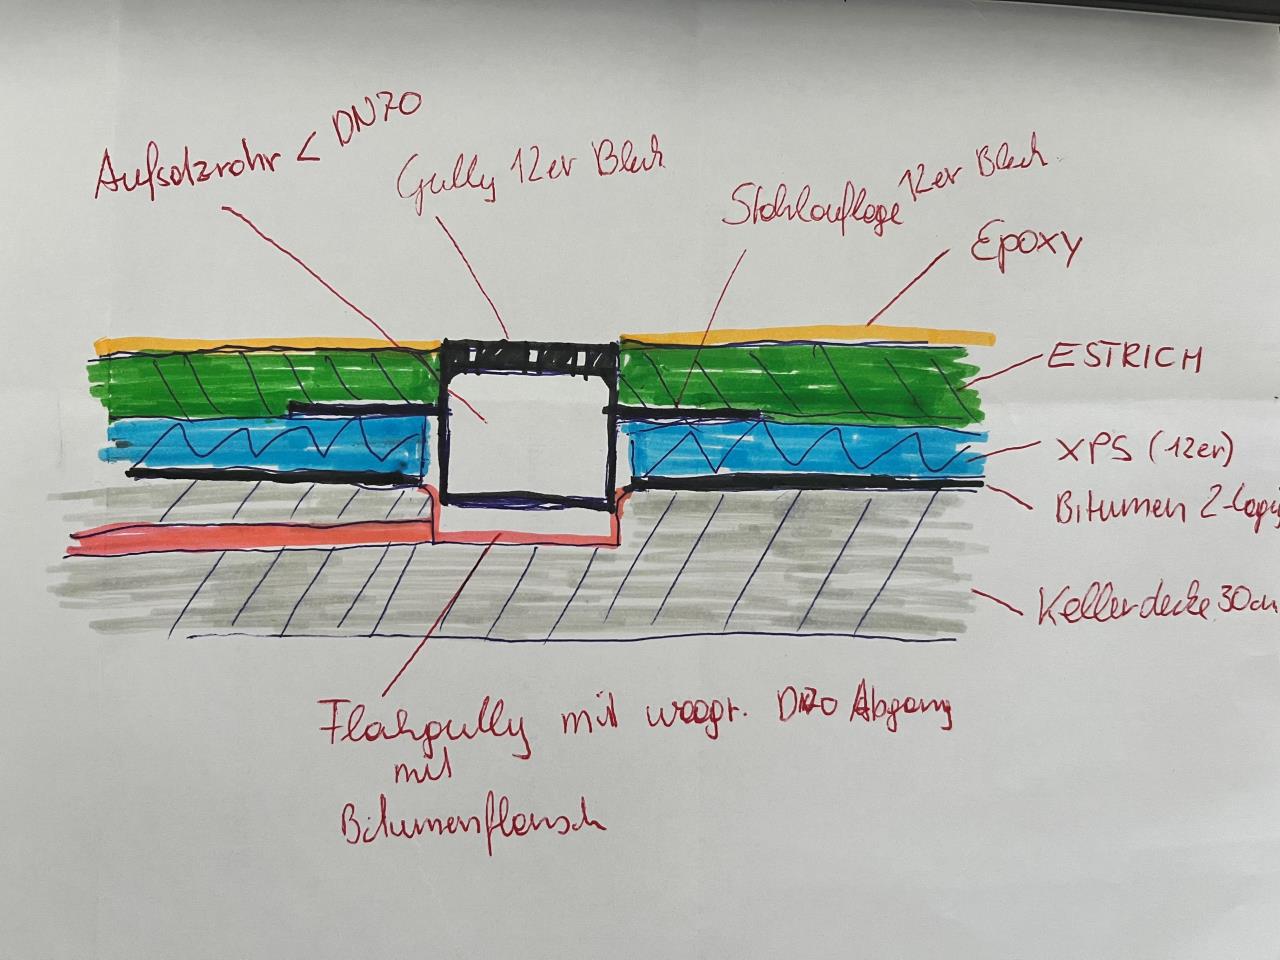 Aufsatzrohr < DN70
Gully 12er Blech
Stahlauflage 12er Blech
Epoxy
ESTRICH
XPS (12er)
Bitumen 2-lagig
Kellerdecke 30cm
Flachgully mit waagr. DN70 Abgang
mit
Bitumenflansch